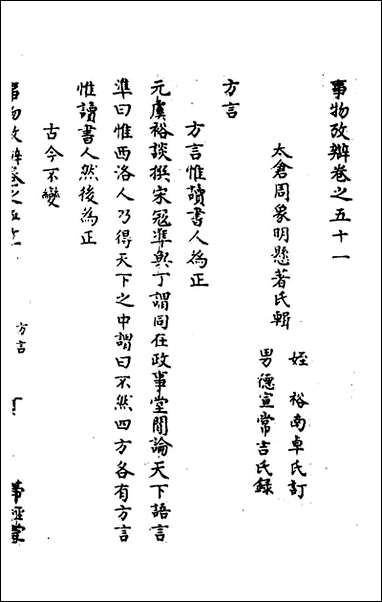 事物攷辯卷之五十一
太倉周象明懸著氏輯
姪　裕南卓氏訂
男德宣常吉氏錄
方言
方言惟讀書人為正
元虞裕談撰宋寇準與丁謂同在政事堂閒論天下語言
準曰惟西洛人乃得天下之中謂曰不然四方各有方言
惟讀書人然後為正
古今不變
事物攷辯卷之五十一
方言